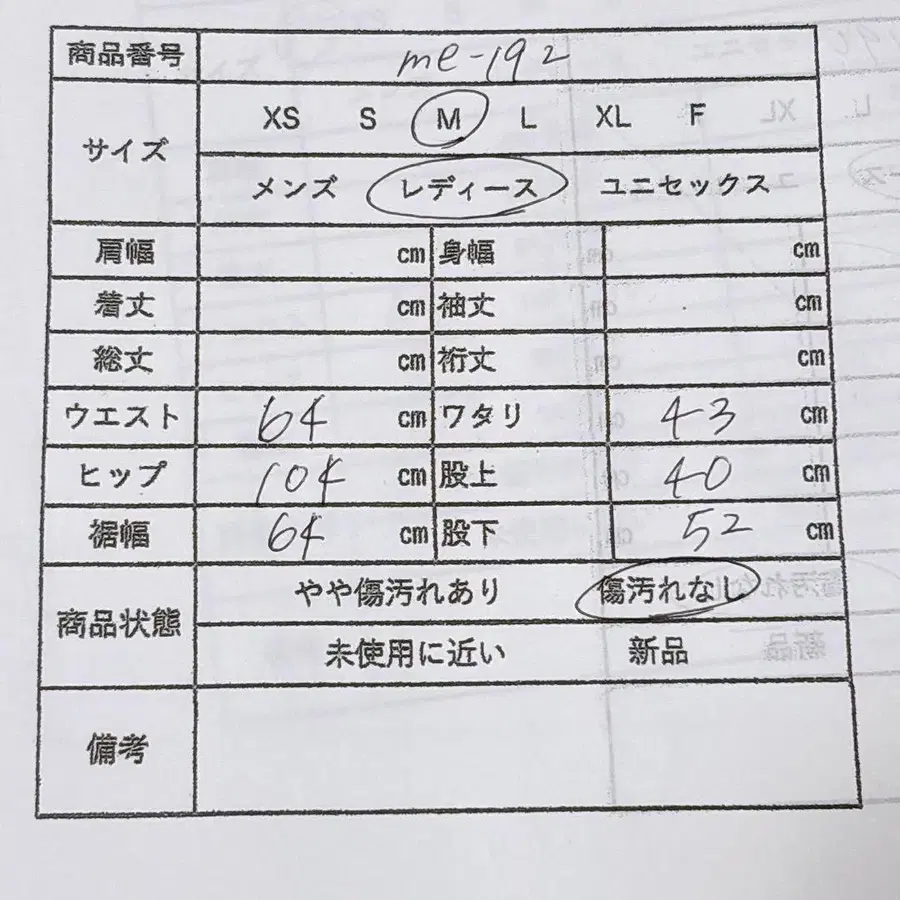 商品番号 me-192
サイズ XS S M L XL F
メンズ レディース ユニセックス
肩幅 cm 身幅 cm
着丈 cm 袖丈 cm
総丈 cm 裄丈 cm
ウエスト 64 cm ワタリ 43 cm
ヒップ 104 cm 股上 40 cm
裾幅 64 cm 股下 52 cm
商品状態 やや傷汚れあり 傷汚れなし
未使用に近い 新品
備考